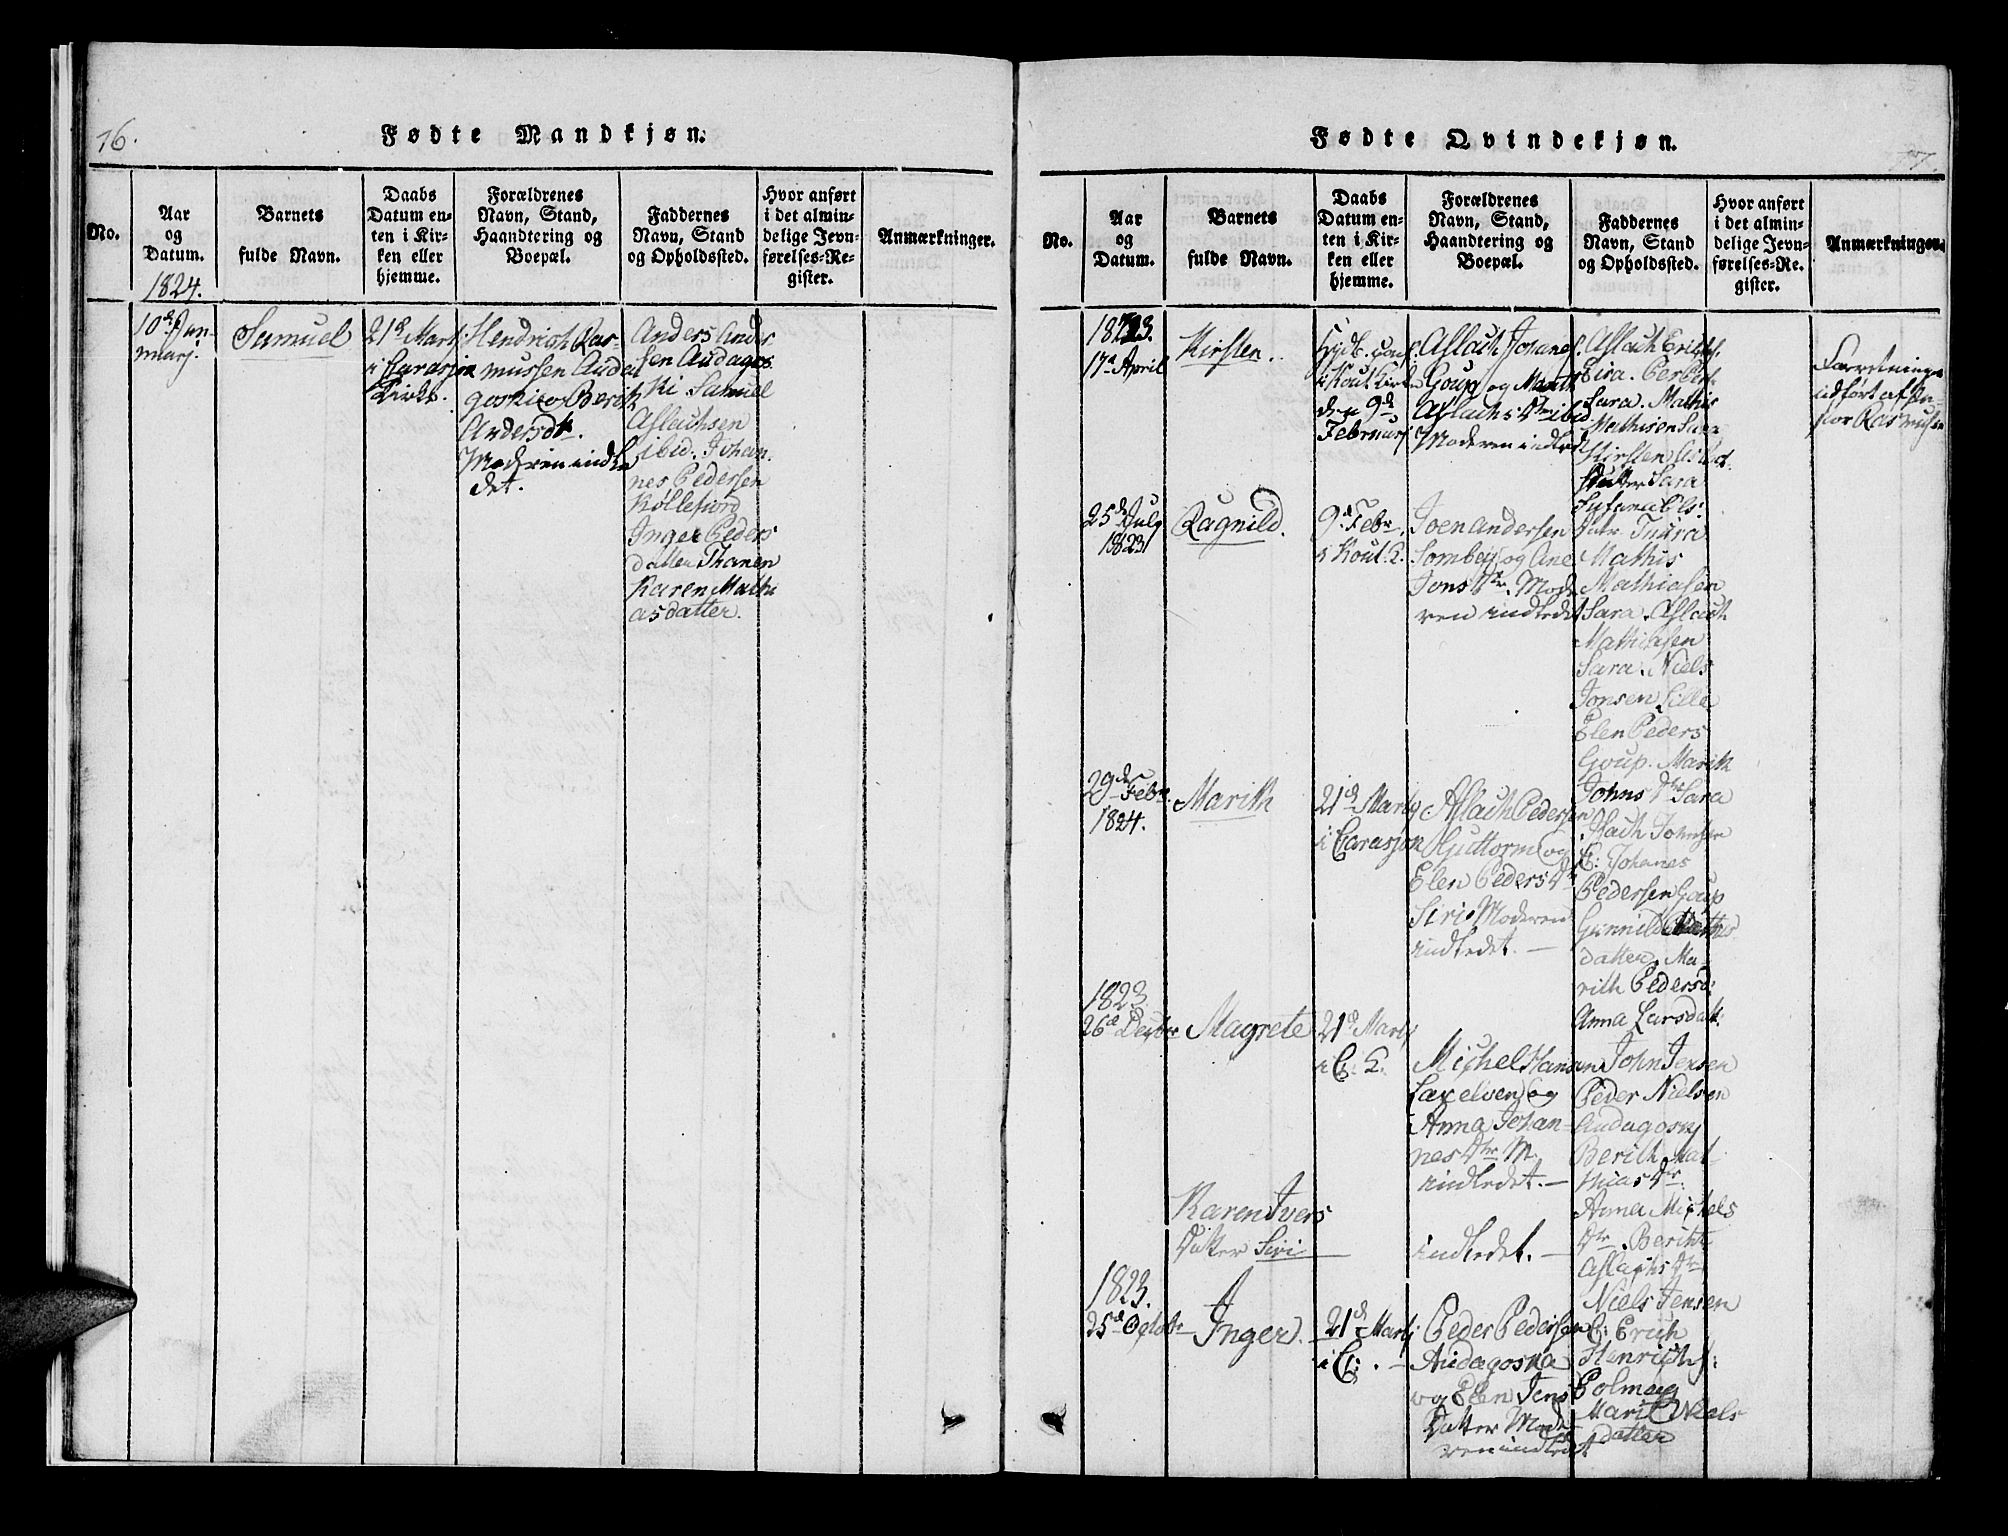 76.
Fødte Mandkjøn.
No.
Aar
og
Datum.
1824.
Barnets
fulde Navn.
Daabs
Datum en-
ten i Kir-
ken eller
hjemme.
Forældrenes
Navn, Stand,
Haandtering og
Boepæl.
Faddernes
Navn, Stand
og Opholdssted.
Hvor anført
i det almin-
delige Jevn-
førelses-Re-
gister.
Anmærkninger.
10d Jan-
uarj.
Samuel
21d Martj
i Carasjon
Kirke.
Hendrich Ras-
mussen Audа
goski og Berith
Andersdtr.
Moderen indle
det.
Anders Anders
sen Audagos
ki Samuel
Aslachsen
ibid. Johan-
nes Pedersen
Kollefiord
Inger Peders
datter Thanen
Karen Mathi
asdatter.
Fødte Qvindekjøn.
77.
No.
Aar
og
Datum.
Barnets
fulde Navn.
Daabs
Datum en-
ten i Kir-
ken eller
hjemme.
Forældrenes
Navn, Stand,
Haandtering og
Boepæl.
Faddernes
Navn, Stand
og Opholdssted.
Hvor anført
i det almin-
delige Jevn-
førelses-Re-
gister.
Anmærkninger.
1823.
17d April
Kirsten.
i Kout. Kirke
den 9d
Februarj
Aslach Johanes.
Goup og Marith
Aslachs Dtr ibid.
Moderen indled
Aslach Erichs.
Sara. Mathis
Mathisen Sara
Kirsten Aslach
datter Sara
Forretningen
udført af Pa-
stor Rasmussen
25d July
1823
Ragnild.
9d Febr.
i Kout. K.
Joen Andersen
Somby og Ane
Jons Dtr. Mode
ren indledet
Mathis
Mathiasen
Sara. Aslach
Mathiasen
Sara. Niels
Jonsen Lille
Elen Peders
Goup. Marith
Johns Dtr Sara
29de Febr.
1824.
Marith
21d Martj
i Carasjon
Aslach Pedersen
Guttorm og
Elen Peders Dtr
Siri. Moderen
indledet. —
C: Johanes
Pedersen Goup
Gunnild Mathis
datter. Ma-
rith Pedersd:
Anna Larsdatt.
1823.
26d Decbr
Magrete
21d Martj
i C. K.
Michel Hansen
Laxelven og
Anna Johan-
nes Dtr M.
indledet. —
John Jensen
Peder Nielsen
Audagosky
Berith Mat-
hias Dtr.
Anna Michels
Dtr. Berith
Aslachs Dtr
Karen Ivers
Datter Siri —
indledet. —
1823.
25d Octobr
Inger.
21d Martj
i C: . —
Peder Pedersen
Audagoska
og Elen Jens
Datter Mode
ren indledet
Niels Jensen
C: Erich
Henrichs:
Polmag
Marit Niels
datter